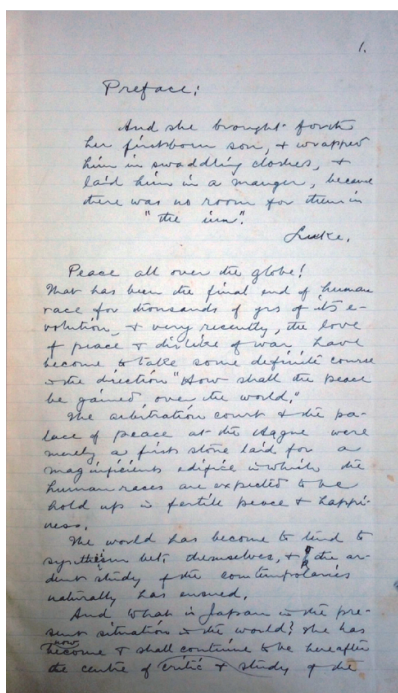 1.
Preface:
And she brought forth
her firstborn son, & wrapped
him in swaddling clothes, &
laid him in a manger, because
there was no room for them in
"the inn".
Luke.
Peace all over the globe!
That has been the final end of human
race for thousands of yrs of its e-
volution, & very recently, the love
of peace & dislike of war have
become to take some definite course
in the direction "How shall the peace
be gained over the world."
The arbitration court & the pa-
lace of peace at the Hague were
merely a first stone laid for a
magnificients edifice in which the
human races are expected to be
hold up in fertile peace & happi-
ness.
The world has become to tend to
bet. themselves, & the ar-
dent study of the contemporaries
naturally has ensued.
And what is Japan in the pre-
sent situation in the world? She has
now
become & shall continue to be hereafter
the centre of critic & study of the